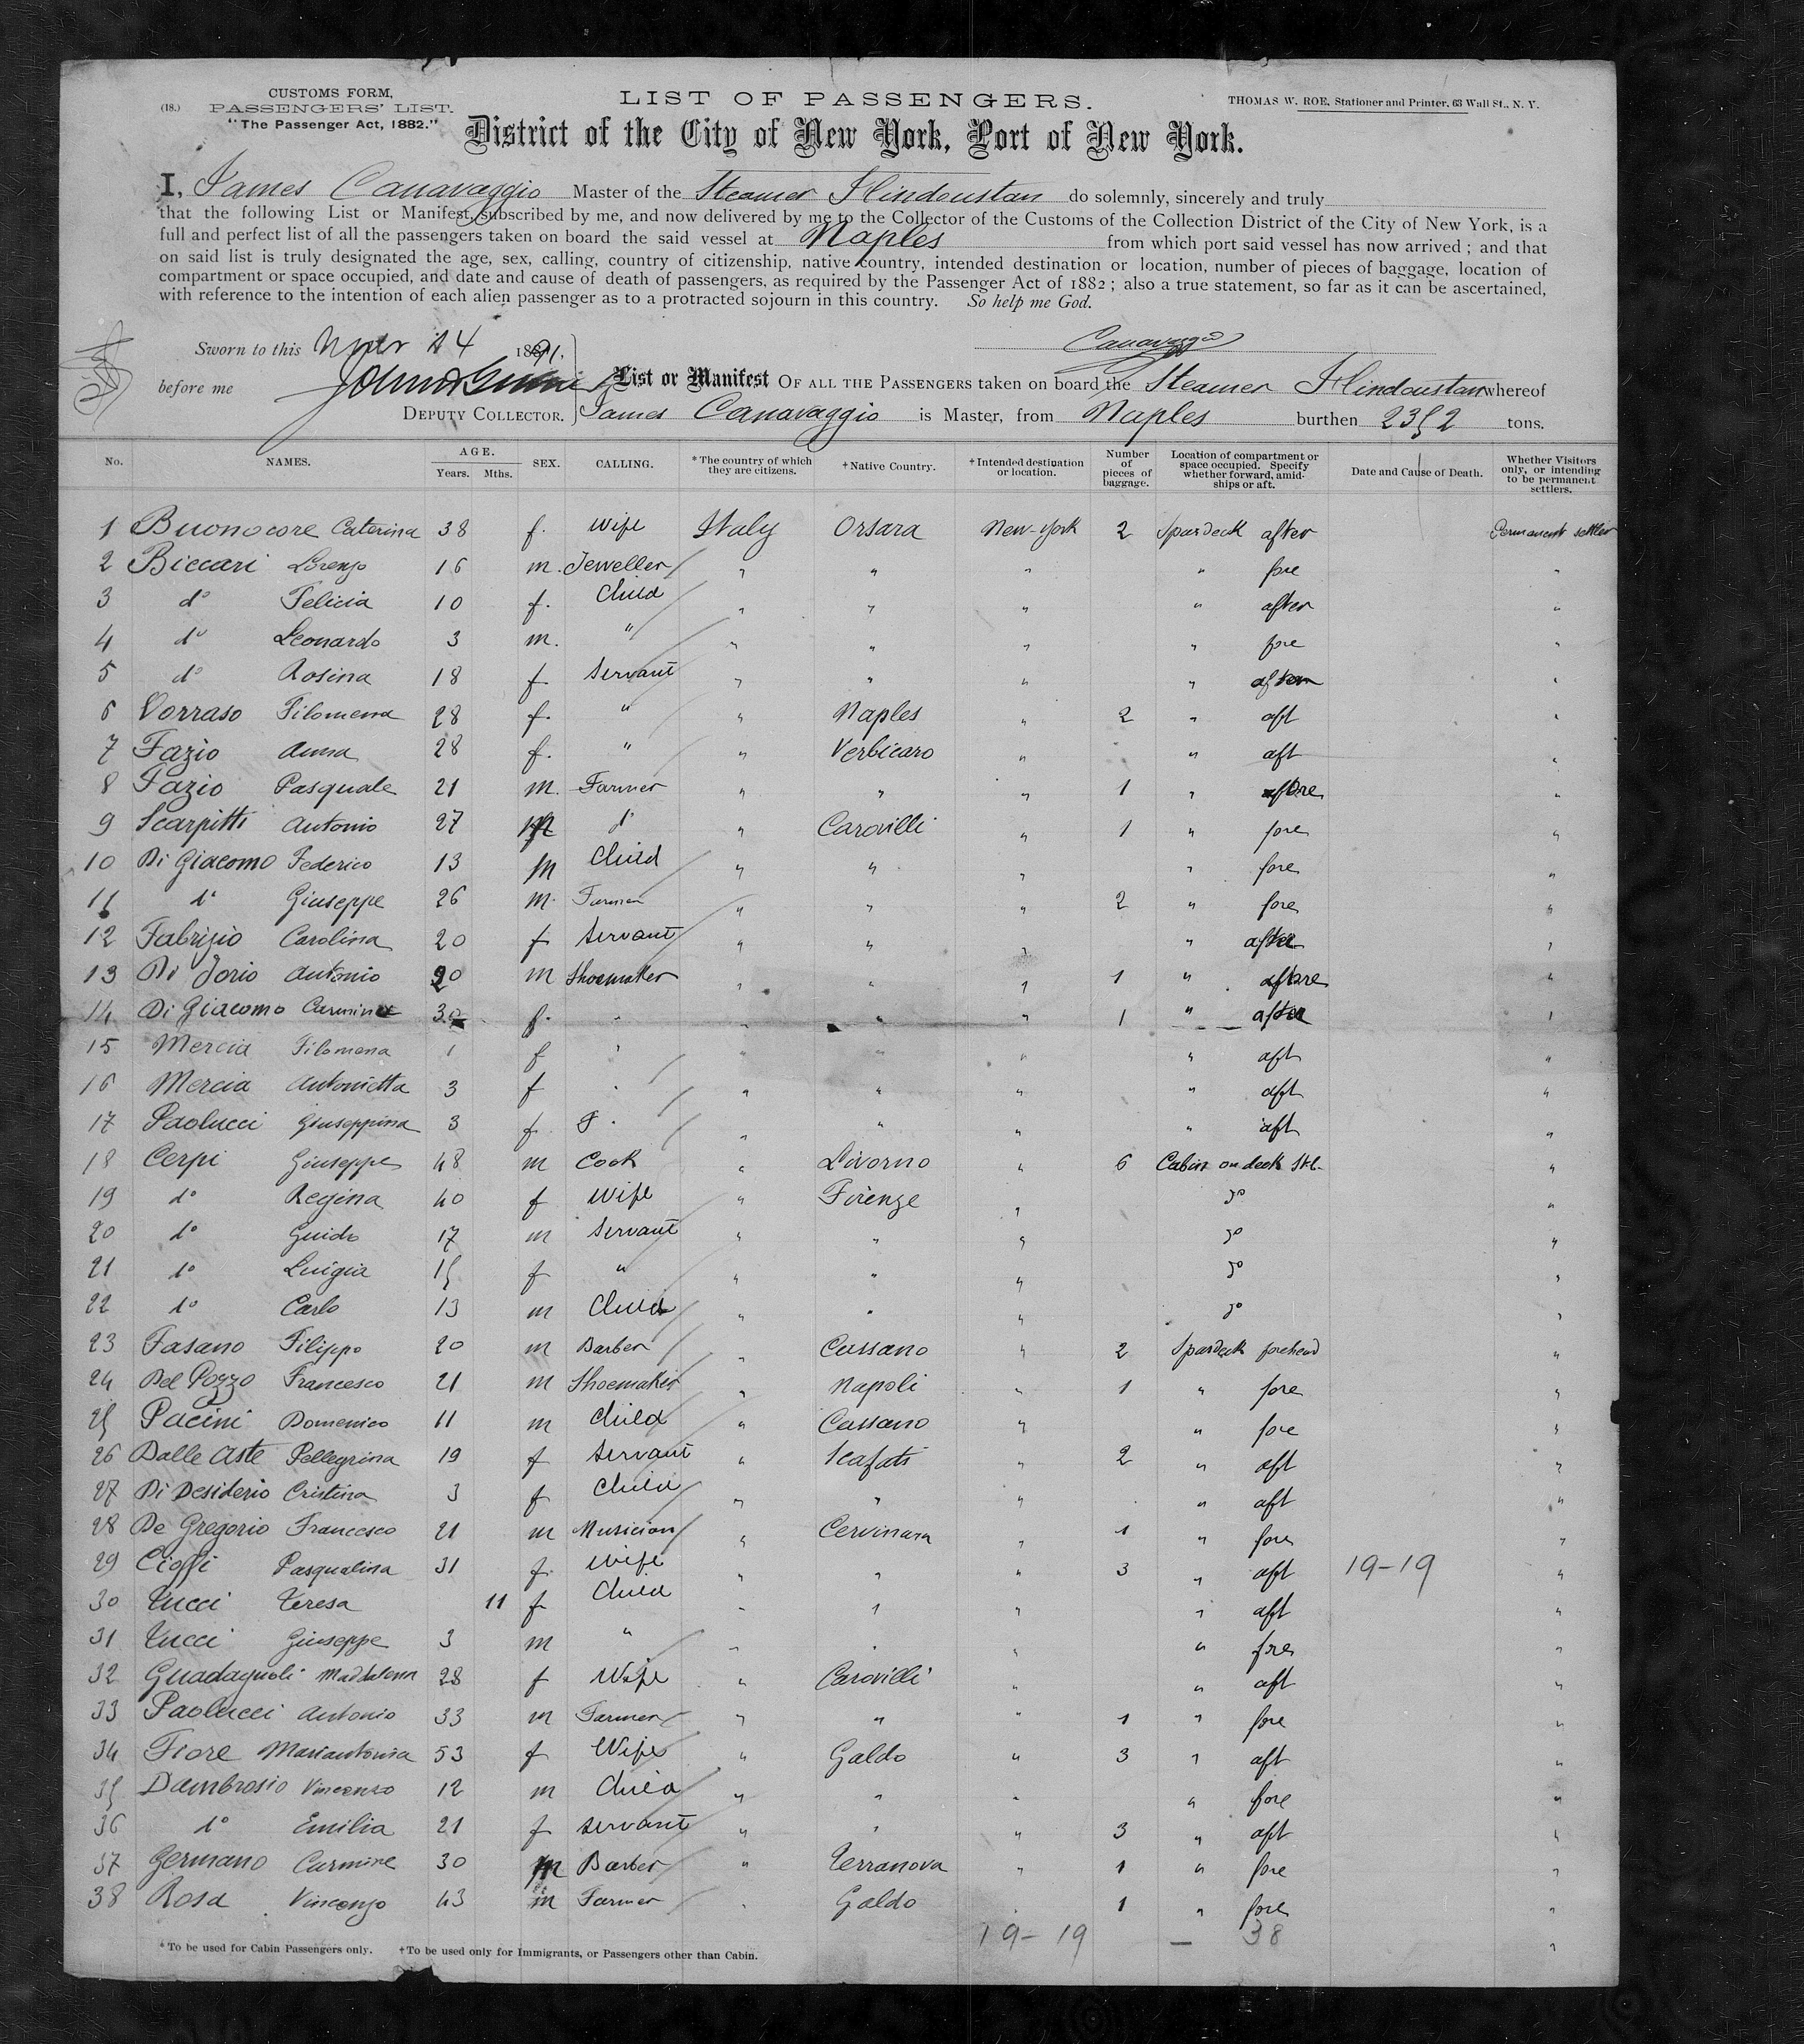 (18.)
CUSTOMS FORM,
PASSENGERS' LIST.
"The Passenger Act, 1882."
LIST OF PASSENGERS.
THOMAS W. ROE, Stationer and Printer, 63 Wall St., N. Y.
District of the City of New York, Port of New York.
I, James Canavaggio Master of the Steamer Hindoustan do solemnly, sincerely and truly
that the following List or Manifest, subscribed by me, and now delivered by me to the Collector of the Customs of the Collection District of the City of New York, is a
full and perfect list of all the passengers taken on board the said vessel at Naples from which port said vessel has now arrived ; and that
on said list is truly designated the age, sex, calling, country of citizenship, native country, intended destination or location, number of pieces of baggage, location of
compartment or space occupied, and date and cause of death of passengers, as required by the Passenger Act of 1882 ; also a true statement, so far as it can be ascertained,
with reference to the intention of each alien passenger as to a protracted sojourn in this country. So help me God.
Canavaggio
Sworn to this 14 1891.
before me
DEPUTY COLLECTOR.
List or Manifest OF ALL THE PASSENGERS taken on board the Steamer Hindoustan whereof
James Canavaggio is Master, from Naples burthen 2352 tons.
No. NAMES. AGE. Years. Mths. SEX. CALLING. *The country of which they are citizens. †Native Country. †Intended destination or location. Number of pieces of baggage. Location of compartment or space occupied. Specify whether forward, amidships or aft. Date and Cause of Death. Whether Visitors only, or intending to be permanent settlers.
1 Buonocore Caterina 38 f. Wife Italy Orsara New-York 2 Spardeck after Permanent settler
2 Biccari Lorenzo 16 m. Jeweller " " " " fore "
3 do Felicia 10 f. Child " " " " after "
4 do Leonardo 3 m. " " " " " fore "
5 do Rosina 18 f. Servant " " " " after "
6 Vorraso Filomena 28 f. " " Naples " 2 " aft "
7 Fazio Anna 28 f. " " Verbicaro " " aft "
8 Fazio Pasquale 21 m. Farmer " " " 1 " fore "
9 Scarpitti Antonio 27 m do " Carovilli " 1 " fore "
10 Di Giacomo Federico 13 m Child " " " " fore "
11 do Giuseppe 26 m. Farmer " " " 2 " fore "
12 Fabrizio Carolina 20 f Servant " " " " after "
13 Di Jorio Antonio 20 m Shoemaker " " " 1 " fore "
14 Di Giacomo Carmina 30 f. " " " " 1 " after "
15 Mercia Filomena 1 f " " " " " aft "
16 Mercia Antonietta 3 f " " " " " aft "
17 Paolucci Giuseppina 3 f. " " " " aft "
18 Cerpi Giuseppe 48 m Cook " Livorno " 6 Cabin on deck "
19 do Regina 40 f Wife " Firenze " do "
20 do Guido 17 m Servant " " " do "
21 do Luigia 15 f " " " " do "
22 do Carlo 13 m Child " " " do "
23 Fasano Filippo 20 m Barber " Cassano " 2 Spardeck forehead "
24 Del Pozzo Francesco 21 m Shoemaker " Napoli " 1 " fore "
25 Pacini Domenico 11 m Child " Cassano " " fore "
26 Dalle Aste Pellegrina 19 f Servant " Scafati " 2 " aft "
27 Di Desiderio Cristina 3 f Child " " " " aft "
28 De Gregorio Francesco 21 m Musician " Cervinara " 1 " fore "
29 Cioffi Pasqualina 31 f. Wife " " " 3 " aft 19-19 "
30 Tucci Teresa 11 f Child " " " " aft "
31 Tucci Giuseppe 3 m " " " " " fore "
32 Guadagnoli Maddalena 28 f Wife " Carovilli " " aft "
33 Paolucci Antonio 33 m Farmer " " " 1 " fore "
34 Fiore Mariantonia 53 f Wife " Galdo " 3 " aft "
35 Dambrosio Vincenzo 12 m Child " " " " fore "
36 do Emilia 21 f servant " " " 3 " aft "
37 Germano Carmine 30 m Barber " Terranova " 1 " fore "
38 Rosa Vincenzo 43 m Farmer " Galdo " 1 " fore "
19-19 — 38 "
*To be used for Cabin Passengers only. †To be used only for Immigrants, or Passengers other than Cabin.